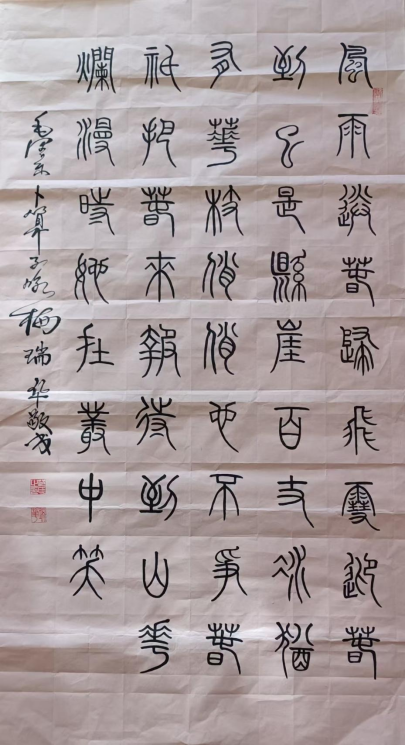 風雨送春歸飛雪迎春
到已是縣崖百丈冰猶
有華枝俏俏也不爭春
祇把春來報待到山華
爛漫時她在叢中笑
毛泽东卜算子咏梅瑞华敬书